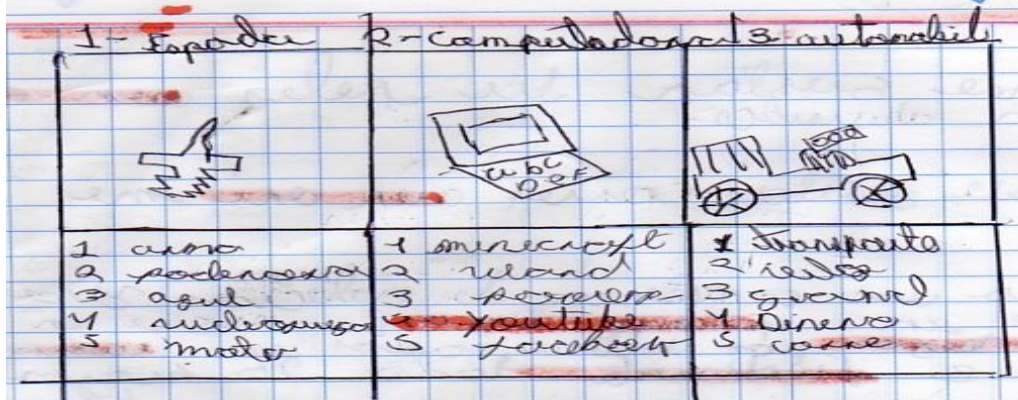 1- Espada 2- computadora 3- automobil
a b c
D e F
1 arma
2 poderosa
3 agul
4
5 mata
1 minecraft
2 word
3
4 youtube
5 facebook
1 transporte
2
3 grand
4 Dinero
5 corre